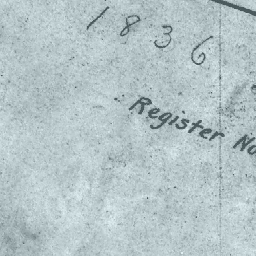 1836
Register No